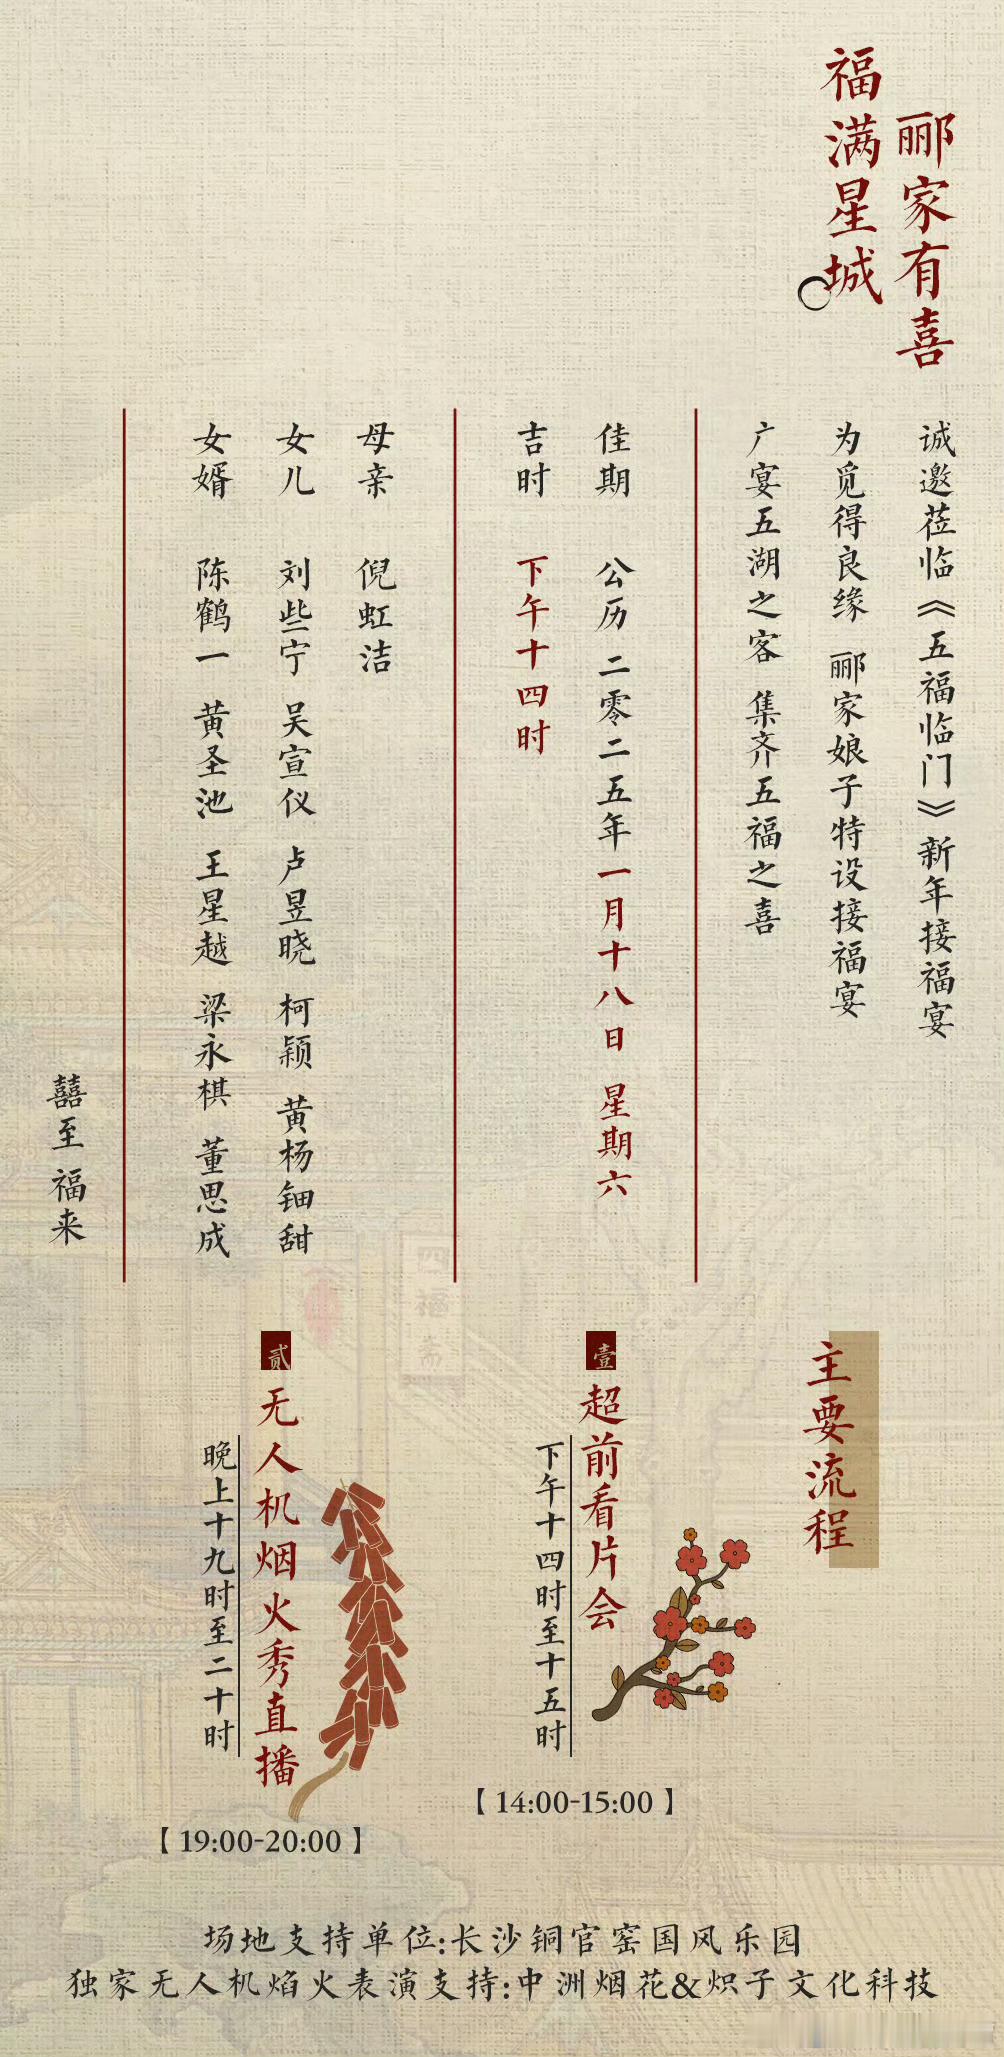 郦家有喜
福满星城
诚邀莅临《五福临门》新年接福宴
为觅得良缘 郦家娘子特设接福宴
广宴五湖之客 集齐五福之喜
佳期 公历 二零二五年一月十八日 星期六
吉时 下午十四时
母亲 倪虹洁
女儿 刘些宁 吴宣仪 卢昱晓 柯颖 黄杨钿甜
女婿 陈鹤一 黄圣池 王星越 梁永棋 董思成
囍至 福来
主要流程
壹 超前看片会
下午十四时至十五时
【 14:00-15:00 】
贰 无人机烟火秀直播
晚上十九时至二十时
【 19:00-20:00 】
四福斋
场地支持单位:长沙铜官窑国风乐园
独家无人机焰火表演支持:中洲烟花&炽子文化科技